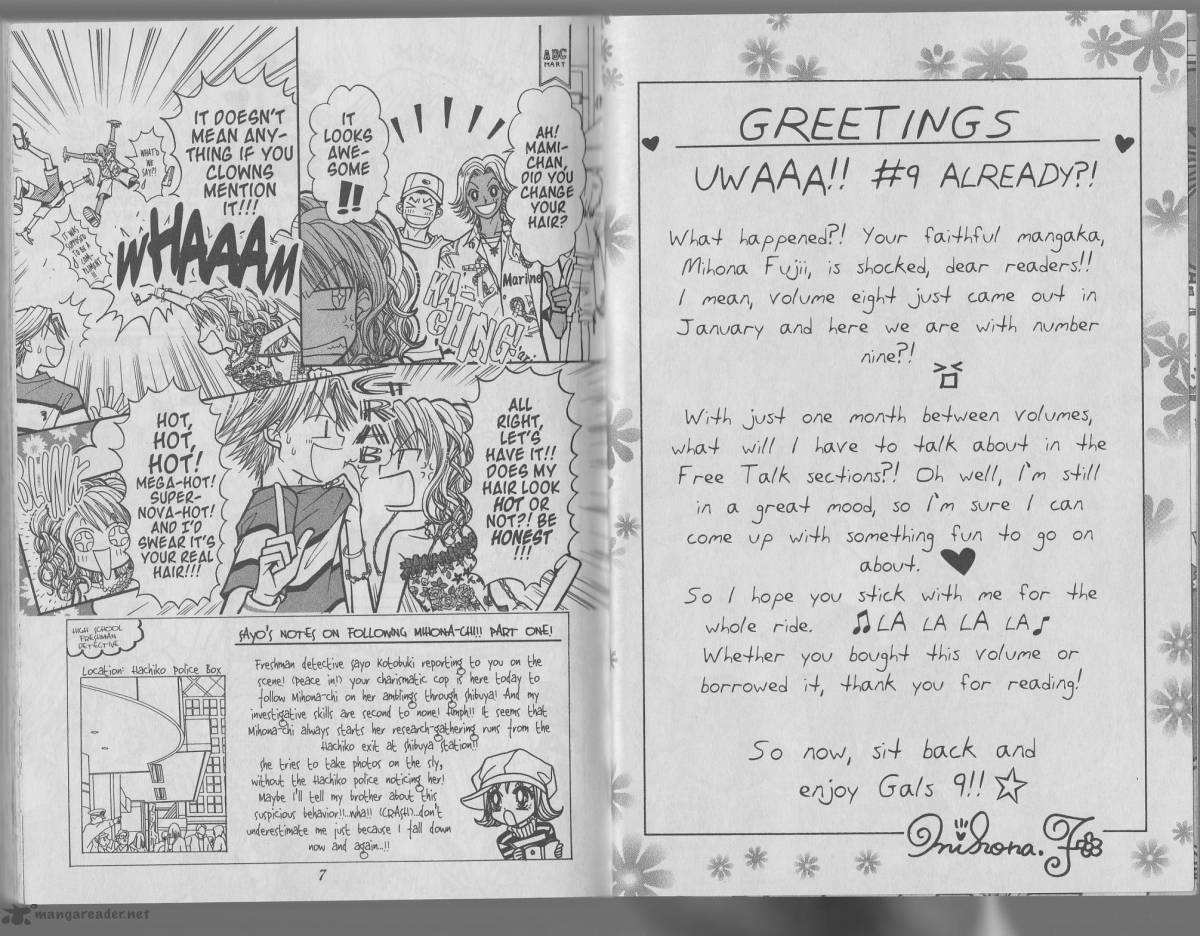 GREETINGS
UWAAA!! #9 ALREADY?!
What happened?! Your faithful mangaka,
Mihona Fujii, is shocked, dear readers!!
I mean, volume eight just came out in
January and here we are with number
nine?!
With just one month between volumes,
what will I have to talk about in the
Free Talk sections?! Oh well, I'm still
in a great mood, so I'm sure I can
come up with something fun to go on
about. ♥
So I hope you stick with me for the
whole ride. ♫ LA LA LA LA ♪
Whether you bought this volume or
borrowed it, thank you for reading!
So now, sit back and
enjoy Gals 9!! ☆
Mihona. F
ABC
MART
AH!
MAMI-
CHAN,
DID YOU
CHANGE
YOUR
HAIR?
IT
LOOKS
AWE-
SOME
!!
Marine
KA-
CHING!
IT DOESN'T
MEAN ANY-
THING IF YOU
CLOWNS
MENTION
IT!!!
WHAT'D
WE
SAY?!
IT WAS
SUPPOSED
TO BE A
COM-
PLIMENT!
WHAAAM
ALL
RIGHT,
LET'S
HAVE IT!!
DOES MY
HAIR LOOK
HOT OR
NOT?! BE
HONEST
!!!
GRAB
HOT,
HOT,
HOT!
MEGA-HOT!
SUPER-
NOVA-HOT!
AND I'D
SWEAR IT'S
YOUR REAL
HAIR!!!
HIGH SCHOOL
FRESHMAN
DETECTIVE
SAYO'S NOTES ON FOLLOWING MIHONA-CHI!! PART ONE!
Location: Hachiko Police Box
Freshman detective Sayo Kotobuki reporting to you on the
scene! (peace in!) your charismatic cop is here today to
follow Mihona-chi on her amblings through Shibuya! And my
investigative skills are second to none! Hmph!! It seems that
Mihona-chi always starts her research-gathering runs from the
Hachiko exit at Shibuya station!!
She tries to take photos on the sly,
without the Hachiko police noticing her!
Maybe I'll tell my brother about this
suspicious behavior!!..wha!! (CRASH)...don't
underestimate me just because I fall down
now and again...!!
7
mangareader.net